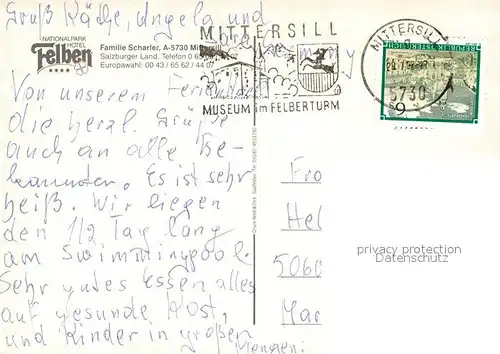 Gruß Käthe, Angela und
NATIONALPARK
HOTEL
Felben
Familie Scharler, A-5730 Mittersill
Salzburger Land, Telefon 0 65
Europawahl: 00 43 / 65 62 / 44 07
MITTERSILL
MUSEUM im FELBERTURM
MITTERSILL
5730
REPUBLIK ÖSTERREICH
6
Von unserem
die herzl. Grüße
auch an alle Be-
kannten. Es ist sehr
heiß. Wir liegen
den 1/2 Tag lang
am Swimmingpool.
Sehr gutes Essen alles
auf gesunde Kost,
und Kinder in großen
Mengen.
Fro
Hel
5060
Mar
privacy protection
Datenschutz